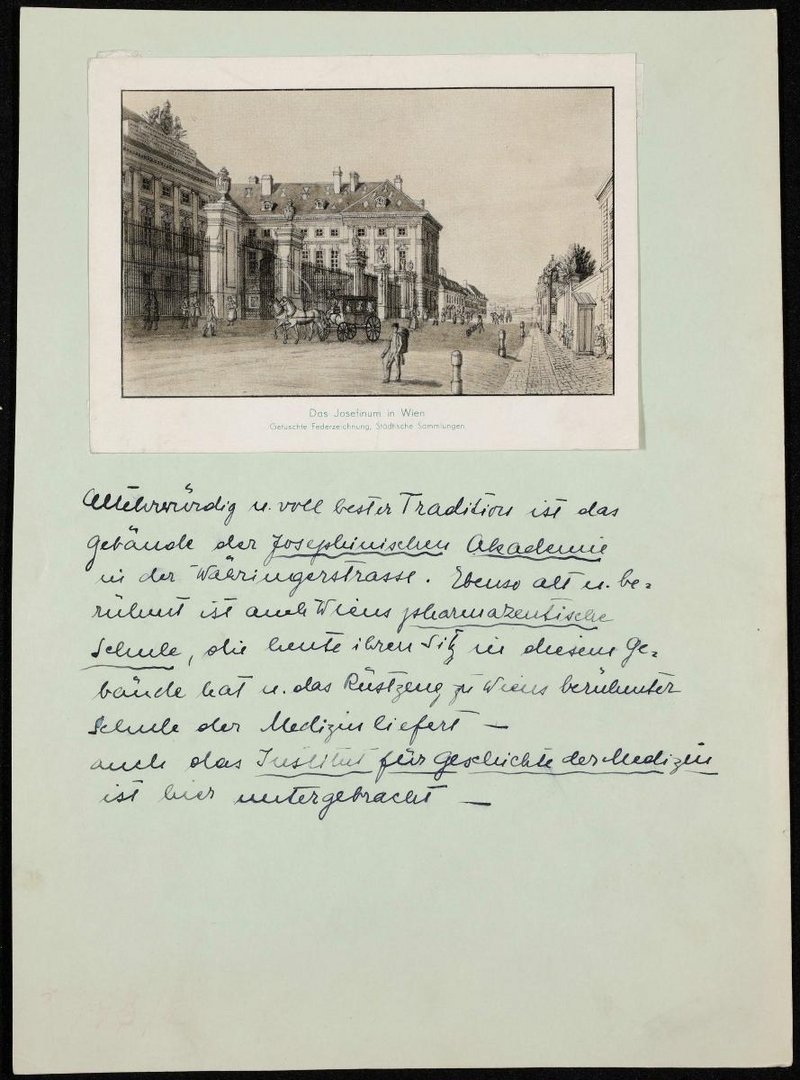 Das Josefinum in Wien
Getuschte Federzeichnung, Städtische Sammlungen
Altehrwürdig u. voll bester Tradition ist das
Gebäude der Josephinischen Akademie
in der Währingerstrasse. Ebenso alt u. be=
rühmt ist auch Wiens pharmazeutische
Schule, die heute ihren Sitz in diesem Ge=
bäude hat u. das Rüstzeug zu Wiens berühmter
Schule der Medizin liefert –
auch das Institut für Geschichte der Medizin
ist hier untergebracht –